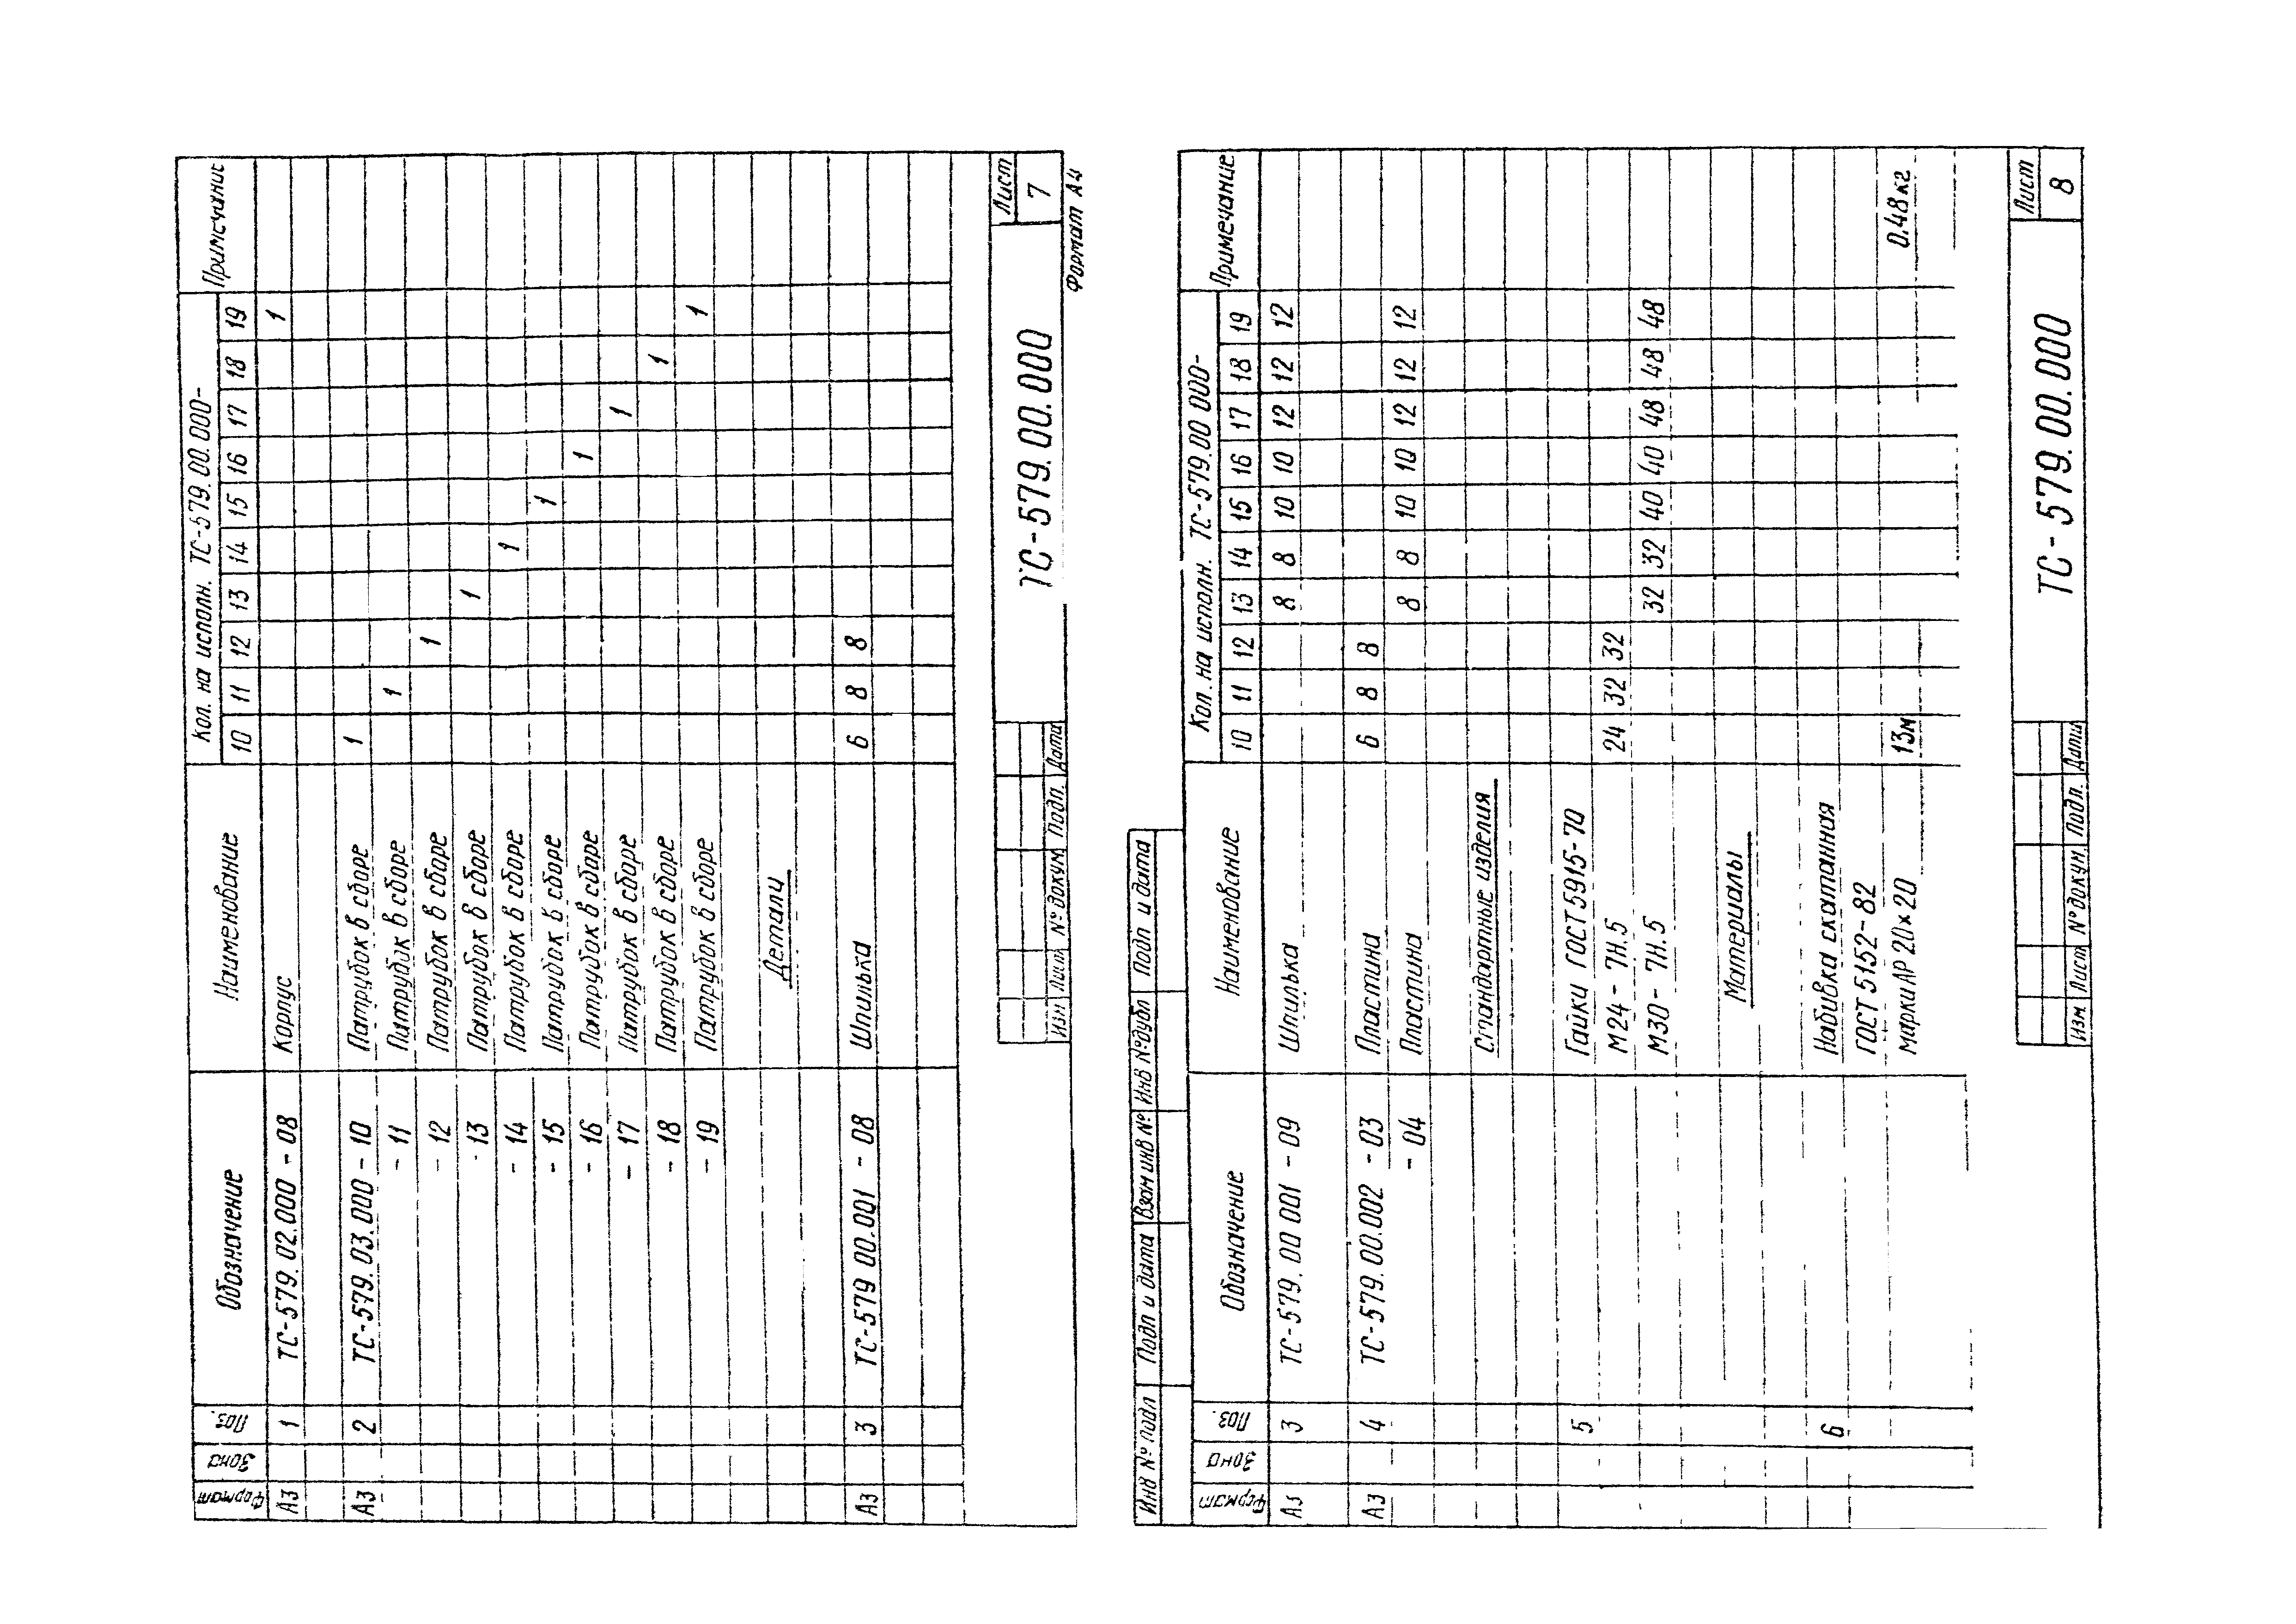 Формат Зона Поз. Обозначение Наименование Кол. на исполн. ТС-579.00.000- Примечание
10 11 12 13 14 15 16 17 18 19
А3 1 ТС-579.02.000 - 08 Корпус 1
А3 2 ТС-579.03.000 - 10 Патрубок в сборе 1
- 11 Патрубок в сборе 1
- 12 Патрубок в сборе 1
- 13 Патрубок в сборе 1
- 14 Патрубок в сборе 1
- 15 Патрубок в сборе 1
- 16 Патрубок в сборе 1
- 17 Патрубок в сборе 1
- 18 Патрубок в сборе 1
- 19 Патрубок в сборе 1
Детали
А3 3 ТС-579 00.001 - 08 Шпилька 6 8 8
Изм Лист № докум Подп. Дата
ТС-579.00.000
Лист
7
Формат А4
Инв № подл Подп и дата Взам инв № Инв № дубл Подп и дата
Формат Зона Поз. Обозначение Наименование Кол. на исполн. ТС-579.00 000- Примечание
10 11 12 13 14 15 16 17 18 19
А3 3 ТС-579. 00 001 - 09 Шпилька 8 8 10 10 12 12 12
А3 4 ТС-579.00.002 - 03 Пластина 6 8 8
- 04 Пластина 8 8 10 10 12 12 12
Стандартные изделия
5 Гайки ГОСТ 5915-70
М24 - 7Н.5 24 32 32
М30 - 7Н.5 32 32 40 40 48 48 48
Материалы
6 Набивка скатанная
ГОСТ 5152-82
марки АР 20×20 13м 0.48кг
Изм Лист № докум. Подп. Дата
ТС - 579. 00. 000
Лист
8